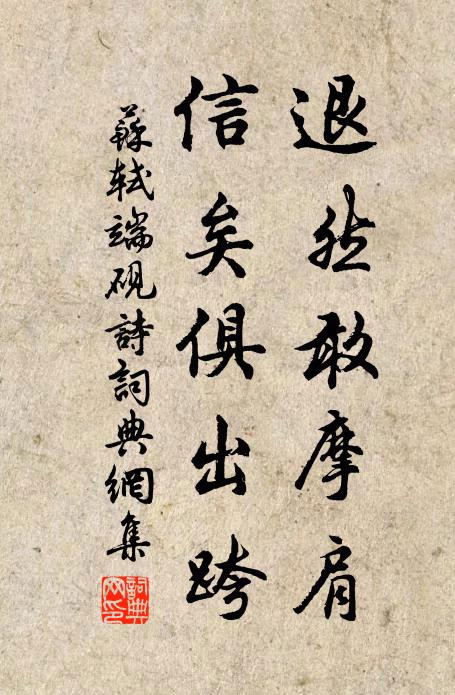 退然敢摩肩
信矣俱出跨
蘇軾端硯詩詞典網集
詞典網印